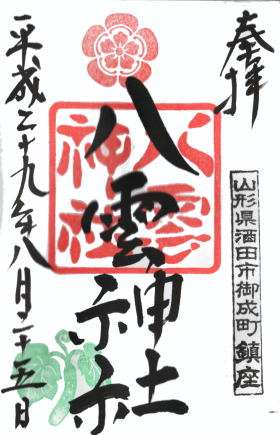 奉拝
山形県酒田市御成町鎮座
八雲神社
八雲神社
平成二十九年八月二十五日